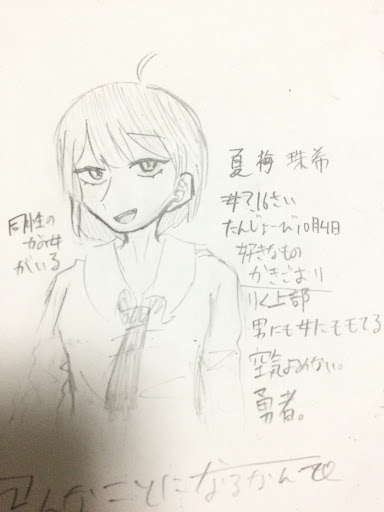 夏梅 珠希
女で16さい
たんじょーび10月4日
好きなもの
かきごおり
りく上部
男にも女にもモてる
空気よめない。
勇者。
同性の
かの女
がいる
こんなことになるなんて